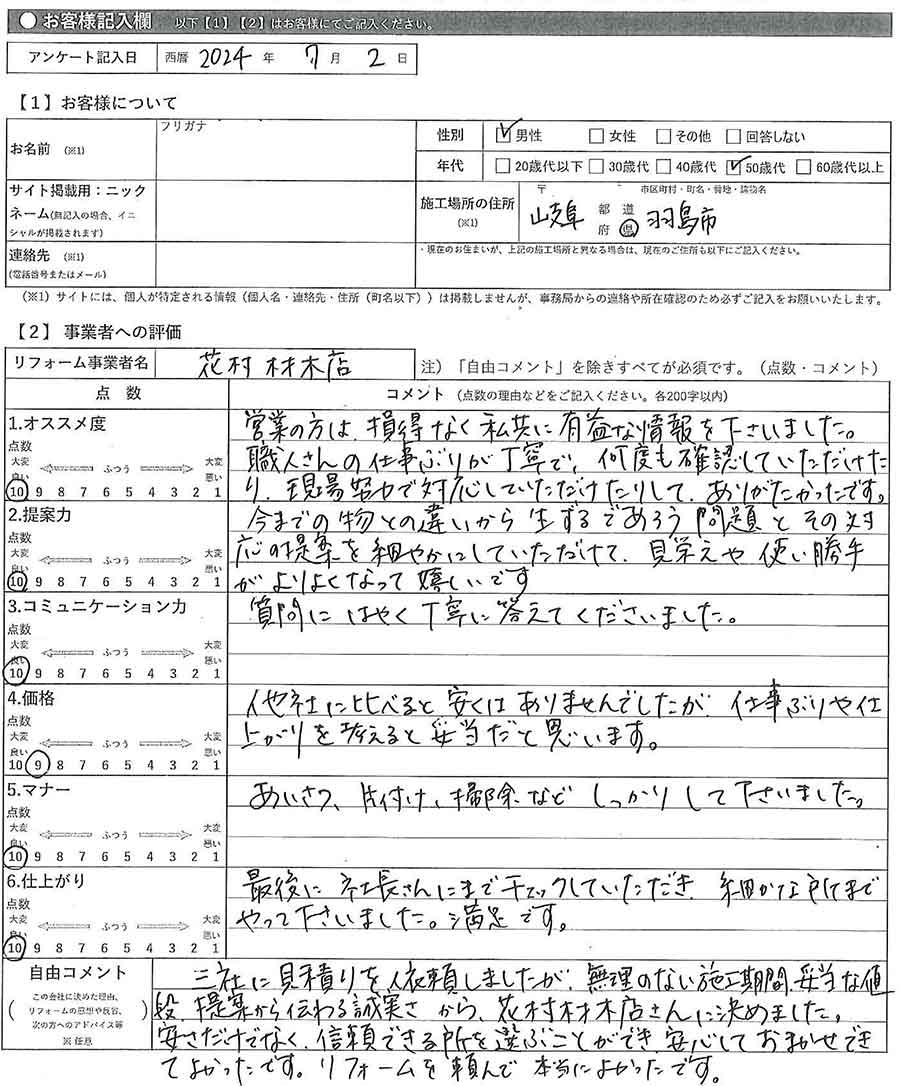 ● お客様記入欄 以下【1】【2】はお客様にてご記入ください。
アンケート記入日 西暦 2024 年 7 月 2 日
【1】お客様について
お名前 (※1) フリガナ
性別 ☑男性 □女性 □その他 □回答しない
年代 □20歳代以下 □30歳代 □40歳代 ☑50歳代 □60歳代以上
サイト掲載用:ニック
ネーム(無記入の場合、イニ
シャルが掲載されます)
施工場所の住所 (※1) 〒 市区町村・町名・番地・建物名
岐阜 都 道 府 県 羽島市
連絡先 (※1)
(電話番号またはメール)
・現在のお住まいが、上記の施工場所と異なる場合は、現在のご住所も以下にご記入ください。
(※1)サイトには、個人が特定される情報(個人名・連絡先・住所(町名以下))は掲載しませんが、事務局からの連絡や所在確認のため必ずご記入をお願いいたします。
【2】事業者への評価
リフォーム事業者名 花村材木店 注)「自由コメント」を除きすべてが必須です。(点数・コメント)
点 数 コメント (点数の理由などをご記入ください。各200字以内)
1.オススメ度
点数
大変 ふつう 大変
良い 悪い
10 9 8 7 6 5 4 3 2 1
営業の方は、損得なく私共に有益な情報を下さいました。
職人さんの仕事ぶりが丁寧で、何度も確認していただけた
り、現場努力で対応していただけたりして、ありがたかったです。
2.提案力
点数
大変 ふつう 大変
良い 悪い
10 9 8 7 6 5 4 3 2 1
今までの物との違いから生ずるであろう問題とその対
応の提案を細やかにしていただけて、見栄えや使い勝手
がよりよくなって嬉しいです
3.コミュニケーション力
点数
大変 ふつう 大変
良い 悪い
10 9 8 7 6 5 4 3 2 1
質問にはやく丁寧に答えてくださいました。
4.価格
点数
大変 ふつう 大変
良い 悪い
10 9 8 7 6 5 4 3 2 1
他社に比べると安くはありませんでしたが 仕事ぶりや仕
上がりを考えると妥当だと思います。
5.マナー
点数
大変 ふつう 大変
良い 悪い
10 9 8 7 6 5 4 3 2 1
あいさつ、片付け、掃除などしっかりして下さいました。
6.仕上がり
点数
大変 ふつう 大変
良い 悪い
10 9 8 7 6 5 4 3 2 1
最後に社長さんにまでチェックしていただき、細かな所まで
やって下さいました。満足です。
自由コメント
(この会社に決めた理由、
リフォームの感想や反省、
次の方へのアドバイス等)
※任意
三社に見積りを依頼しましたが、無理のない施工期間、妥当な値
段、提案から伝わる誠実さから、花村材木店さんに決めました。
安さだけでなく、信頼できる所を選ぶことができ、安心しておまかせでき
てよかったです。リフォームを頼んで本当によかったです。